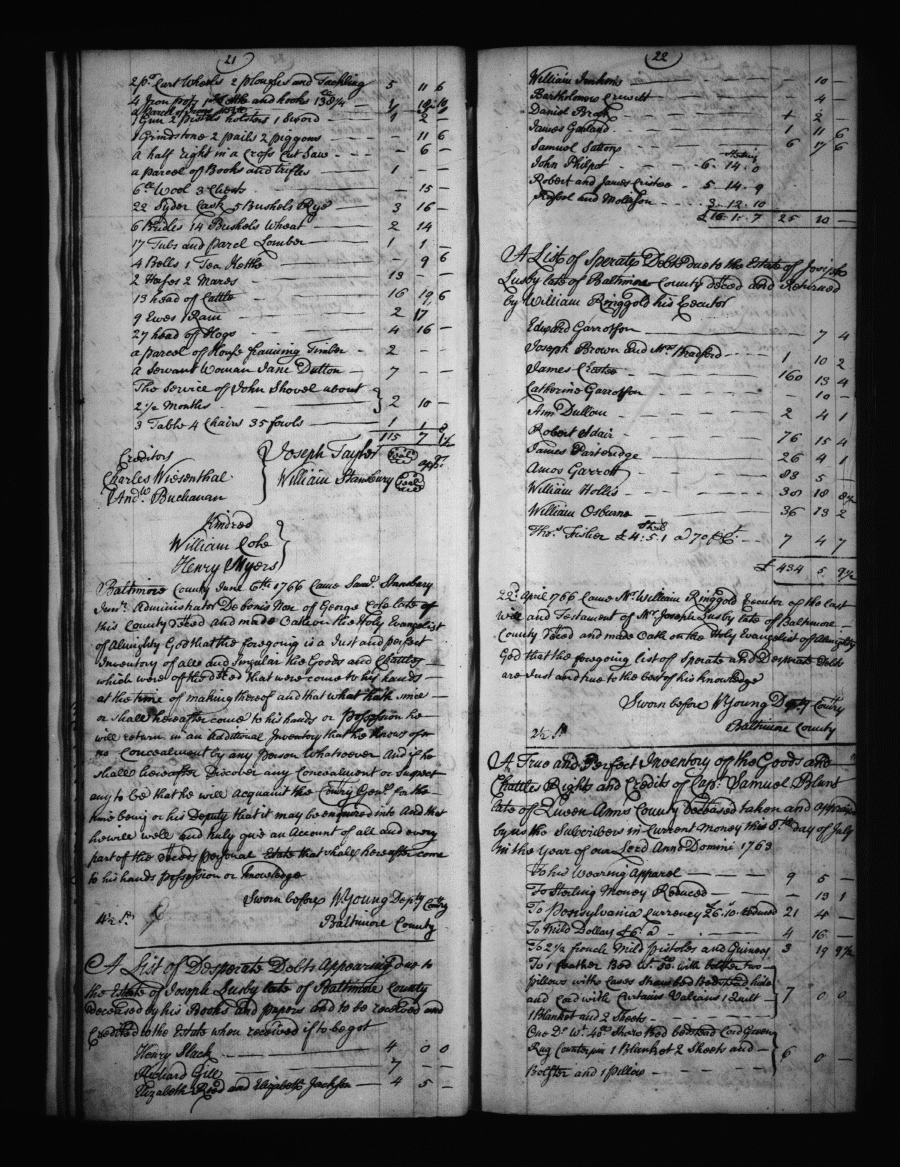 21
2 pr Cart Wheels 2 ploughs and Tackling 5 11 6
4 Iron pots and hooks 138
1 Gun 2 pistols holsters 1 Sword 1 2 -
1 Grindstone 2 pails 2 piggons 11 6
a half right in a Cross Cut Saw - 6 -
a parcel of Books and trifles 1 - -
6 lb Wool 3 Chests - 15 -
22 Syder Cask 5 Bushels Rye 3 16 -
6 Bridles 14 Bushels Wheat 2 14
17 Tubs and parcel Lomber 1 1 -
4 Bells 1 Tea Kettle - 9 6
2 Horses 2 Mares 13 - -
13 head of Cattle 16 19 6
9 Ewes 1 Ram 2 17
27 head of Hogs 4 16 -
a parcel of House framing Timber 2 - -
a Servant Woman Jane Dutton 7 - -
The Service of John Shovel about
2 1/2 Months 2 10 -
3 Table 4 Chairs 35 fowls 1 1 8
115 7 1 1/2
Creditors
Joseph Taylor
Charles Wiesenthal
William Stansbury
Andw Buchanan
Kindred
William Cole
Henry Myers
Baltimore County June 6th 1766 Came Saml Stansbury
Junr Administrator De bonis Non of George Cole late of
this County Deced and made Oath on the Holy Evangelist
of Almighty God that the foregoing is a Just and perfect
Inventory of all and Singular the Goods and Chattles
which were of the Deced that were come to his hands
at the time of making thereof and that what hath since
or shall hereafter come to his hands or possession he
will return in an Additional Inventory that he knows of
no Concealment by any Person Whatsoever And if he
shall hereafter Discover any Concealment or Suspect
any to be that he will Acquaint the Comry Genl for the
time being or his Deputy that it may be enquired into And that
he will well and truly give an Account of all and every
part of the deceds personal Estate that shall hereafter come
to his hands possession or knowledge
Sworn before W Young Depty Comry
Baltimore County
A List of Desperate Debts Appearing due to
the Estate of Joseph Lusby late of Baltimore County
deceased by his Books and papers and to be received and
Credited to the Estate when received if to be got
Henry Slack 4 0 0
Richard Gill 7 - -
Elizabeth Reed and Elizabeth Jackson 4 5 -
22
William Jenkins - 10 -
Bartholomew - 4 -
Daniel 2
James Garland 1 11 6
Samuel Sutton 6 17 6
Sterling
John Philpot 6. 14. 0
Robert and James Cristee 5. 14. 9
and Mollison 3. 12. 10
£16. 1. 7 25 10 -
A List of Sperate Debts Due to the Estate of Joseph
Lusby late of Baltimore County deced and Returned
by William Ringgold his Executor
Edward Garrettson - 7 4
Joseph Brown and Mrs Bradford 1 10 2
James 160 13 4
Catherine Garrettson - 10 -
Ann Dullam 2 4 1
Robert Adair 76 15 4
James Partridge 26 4 1
Amos Garrett 83 5 -
William Hollis 18
William Osburne 36 13 2
Thos Fisher £4:5:1 a 70 P Ct 7 4 7
£ 434 5 9 1/2
22d April 1766 Came Mr William Ringgold Executor of the last
Will and Testament of Mr Joseph Lusby late of Baltimore
County Deced and made Oath on the Holy Evangelist of Almighty
God that the foregoing list of Sperate and Desperate debts
are Just and true to the best of his knowledge
Sworn before W Young Depty Comry
Baltimore County
A True and Perfect Inventory of the Goods and
Chattles Rights and Credits of Capt Samuel Blunt
late of Queen Anns County Deceased taken and appraised
by us the Subscribers in Current Money this 8th day of July
in the Year of our Lord Anno Domini 1763
To his Wearing Apparel 9 5 -
To Sterling Money Reduced - 13 1
To Pensylvania Currency £26.10. reduced 21 4 -
To Mild Dollars 4 16 -
To 2 1/2 french Mild Pistoles and Guineas 3 19 9 1/2
To 1 feather Bed Wt 50 with bolster two
Pillows with Cases Straw bed Bedstead hide
and Cord with Curtains Valains 1 Quilt
1 Blanket and 2 Sheets 7 0 0
One Do Wt 40 Straw Bed bedstead Cord Green
Rug Counterpin 1 Blanket 2 Sheets and
Bolster and 1 pillow 6 0 -